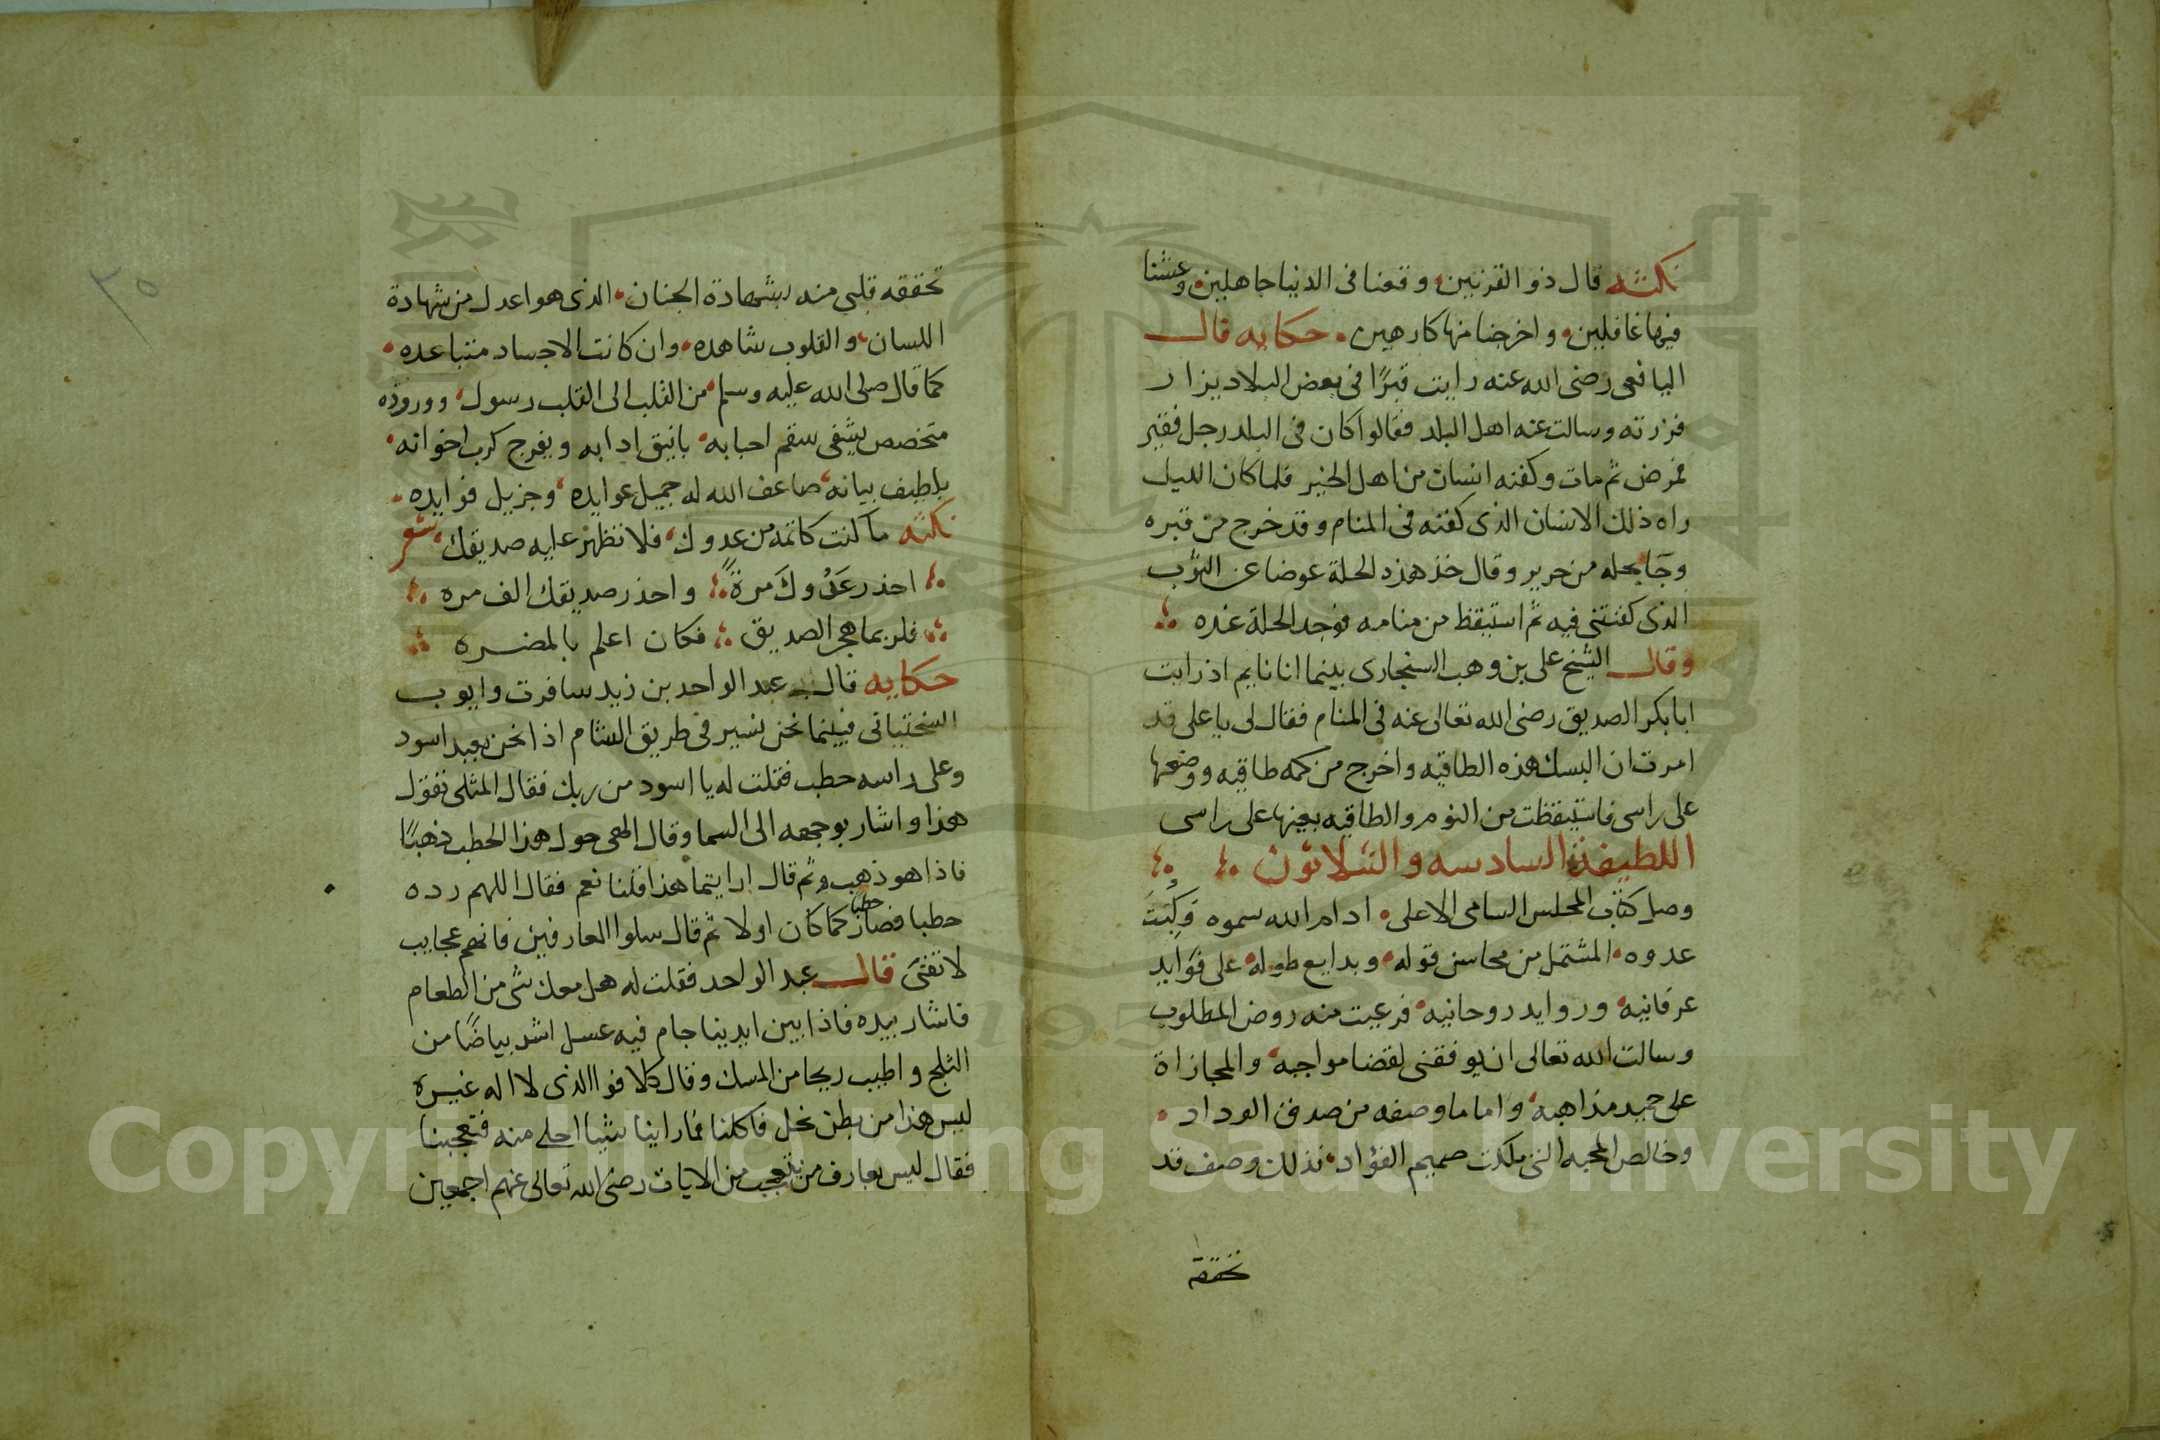 نكته قال ذو القرنين وقعنا فى الدنيا جاهلين وعشنا
فيها غافلين واخرجنا منها كارهين حكايه قال
اليافعى رضى الله عنه رايت قبرًا فى بعض البلاد يزار
فزرته وسالت عنه اهل البلد فقالوا كان فى البلد رجل فقير
فمرض ثم مات وكفنه انسان من اهل الخير فلما كان الليل
راه ذلك الانسان الذى كفنه فى المنام وقد خرج من قبره
وجآ بحله من حرير وقال خذ هذه الحلة عوضا عن الثوب
الذى كفنتنى فيه ثم استيقظ من منامه فوجد الحلة عنده
وقال الشيخ على بن وهب السنجارى بينما انا نايم اذ رايت
ابا بكر الصديق رضى الله تعالى عنه فى المنام فقال لى يا على قد
امرت ان البسك هذه الطاقيه واخرج من كمه طاقيه ووضعها
على راسى فاستيقظت من النوم والطاقيه بعينها على راسى
اللطيفة السادسه والثلاثون
وصل كتاب المجلس السامى الاعلى ادام الله سموه وكبت
عدوه المشتمل من محاسن قوله وبدايع طوله على فوايد
عرفانيه وروايد روحانيه فرعيت منه روض المطلوب
وسالت الله تعالى ان يوفقنى لقضا مواجبه والمجازاة
على حميد مذاهبه واما ما وصفه من صدق الوداد
وخالص المحبه التى ملكت صميم الفؤاد فذلك وصف قد
تحققه
تحققه قلبى منه بشهادة الجنان الذى هو اعدل من شهادة
اللسان والقلوب شاهده وان كانت الاجساد متباعده
كما قال صلى الله عليه وسلم من القلب الى القلب رسول ووروده
متخصص يشفى سقم احبابه بانيق ادابه ويفرج كرب اخوانه
بلطيف بيانه ضاعف الله له جميل عوايده وجزيل فوايده
نكته ما كنت كاتمه من عدوك فلا تظهر عليه صديقك شعر
احذر عَدُوك مَرة واحذر صديقك الف مره
فلربما هجر الصديق فكان اعلم بالمضره
حكايه قال عبد الواحد بن زيد سافرت وايوب
السختيانى فبينما نحن نسير فى طريق الشام اذا نحن بعبد اسود
وعلى راسه حطب فقلت له يا اسود من ربك فقال المثلى تقول
هذا واشار بوجهه الى السما وقال الهى حول هذا الحطب ذهبًا
فاذا هو ذهب ثم قال ارايتما هذا قلنا نعم فقال اللهم رده
حطبا فصار حطبا كما كان اولا ثم قال سلوا العارفين فانهم عجايب
لا تفنى قال عبد الواحد فقلت له هل معك شى من الطعام
فاشار بيده فاذا بين ايدينا جام فيه عسل اشد بياضًا من
الثلج واطيب ريحا من المسك وقال كلا فوا الذى لا اله غيره
ليس هذا من بطن نحل فاكلنا فما راينا شيا احلى منه فتعجبنا
فقال ليس بعارف من يتعجب من الايات رضى الله تعالى عنهم اجمعين
٣٥
Copyright © King Saud University